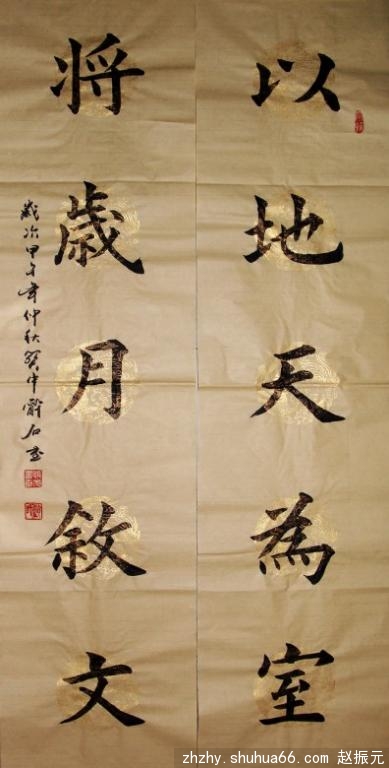 以地天為室
将歳月敘文
歲次甲午年仲秋
zhzhy.shuhua66.com 赵振元